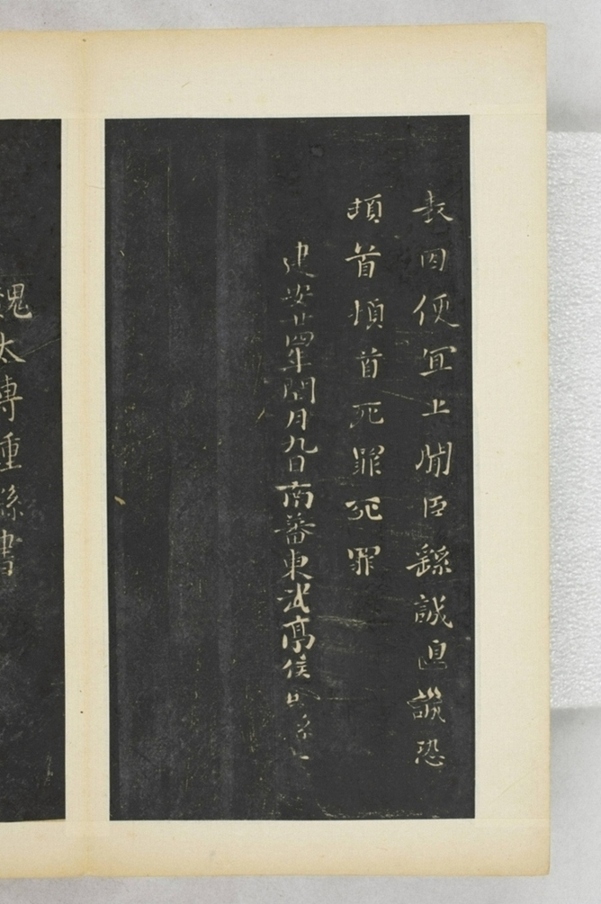 表因便宜上聞臣繇誠皇誠恐
頓首頓首死罪死罪
建安廿四年閏月九日南蕃東武亭侯臣繇上
魏太傅鍾繇書